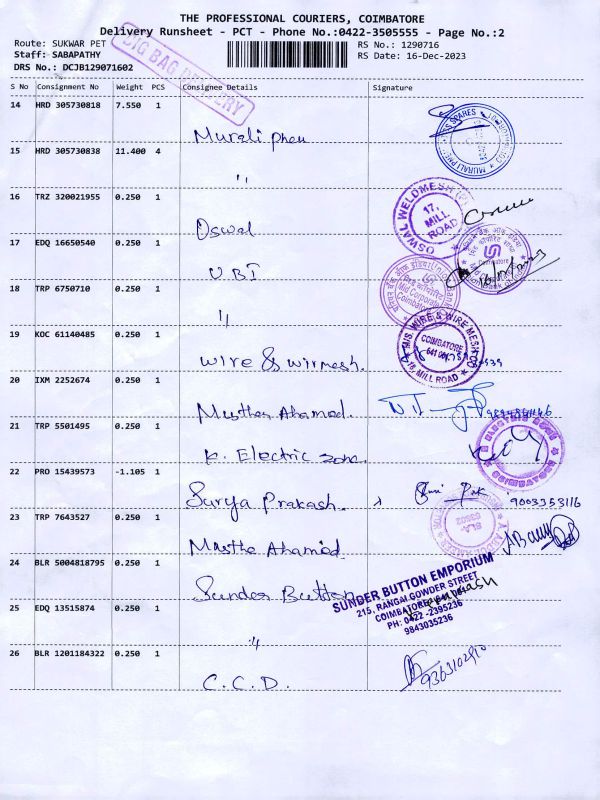 THE PROFESSIONAL COURIERS, COIMBATORE
Delivery Runsheet - PCT - Phone No.:0422-3505555 - Page No.:2
Route: SUKWAR PET
RS No.: 1290716
Staff: SABAPATHY
RS Date: 16-Dec-2023
DRS No.: DCJB129071602
BIG BAG DELIVERY
S No Consignment No Weight PCS Consignee Details Signature
14 HRD 305730818 7.550 1
Murali phen
15 HRD 305730838 11.400 4
"
16 TRZ 320021955 0.250 1
Oswal
OSWAL WELDMESH (P)
17, MILL ROAD
17 EDQ 16650540 0.250 1
UBI
18 TRP 6750710 0.250 1
"
Mid Corporate
Coimbatore
19 KOC 61140485 0.250 1
wire & wirmesh.
M/S. WIRE & WIRE MESH CO
COIMBATORE
18, MILL ROAD
20 IXM 2252674 0.250 1
Musthar Ahamed.
21 TRP 5501495 0.250 1
K. Electric zone.
22 PRO 15439573 -1.105 1
Surya Prakash.
9003353116
23 TRP 7643527 0.250 1
Musthe Ahamed
24 BLR 5004818795 0.250 1
Sunder Button
SUNDER BUTTON EMPORIUM
215, RANGAI GOWDER STREET
COIMBATORE
PH: 0422-2395236
9843035236
25 EDQ 13515874 0.250 1
"
26 BLR 1201184322 0.250 1
C.C.D.